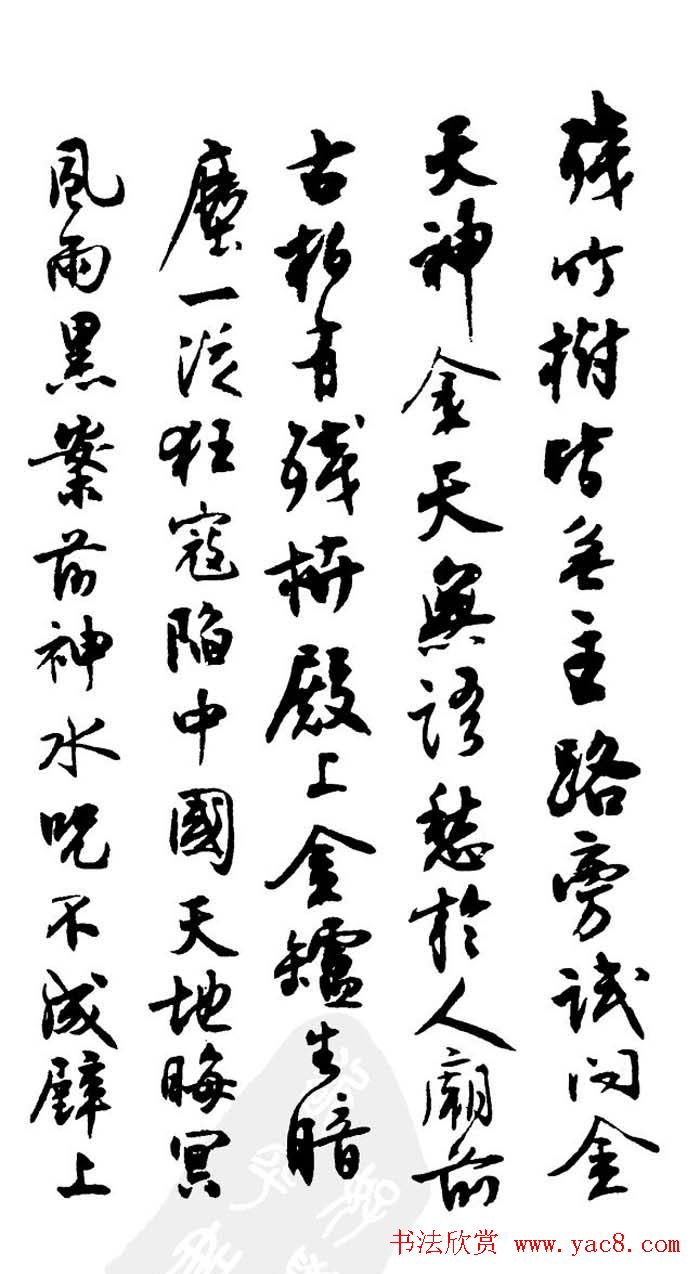 殘竹樹皆無主路旁試問金
天神金天無語愁於人廟前
古柏有殘枿殿上金鑪生暗
塵一從狂寇陷中國天地晦冥
風雨黑案前神水咒不成壁上
书法欣赏 www.yac8.com